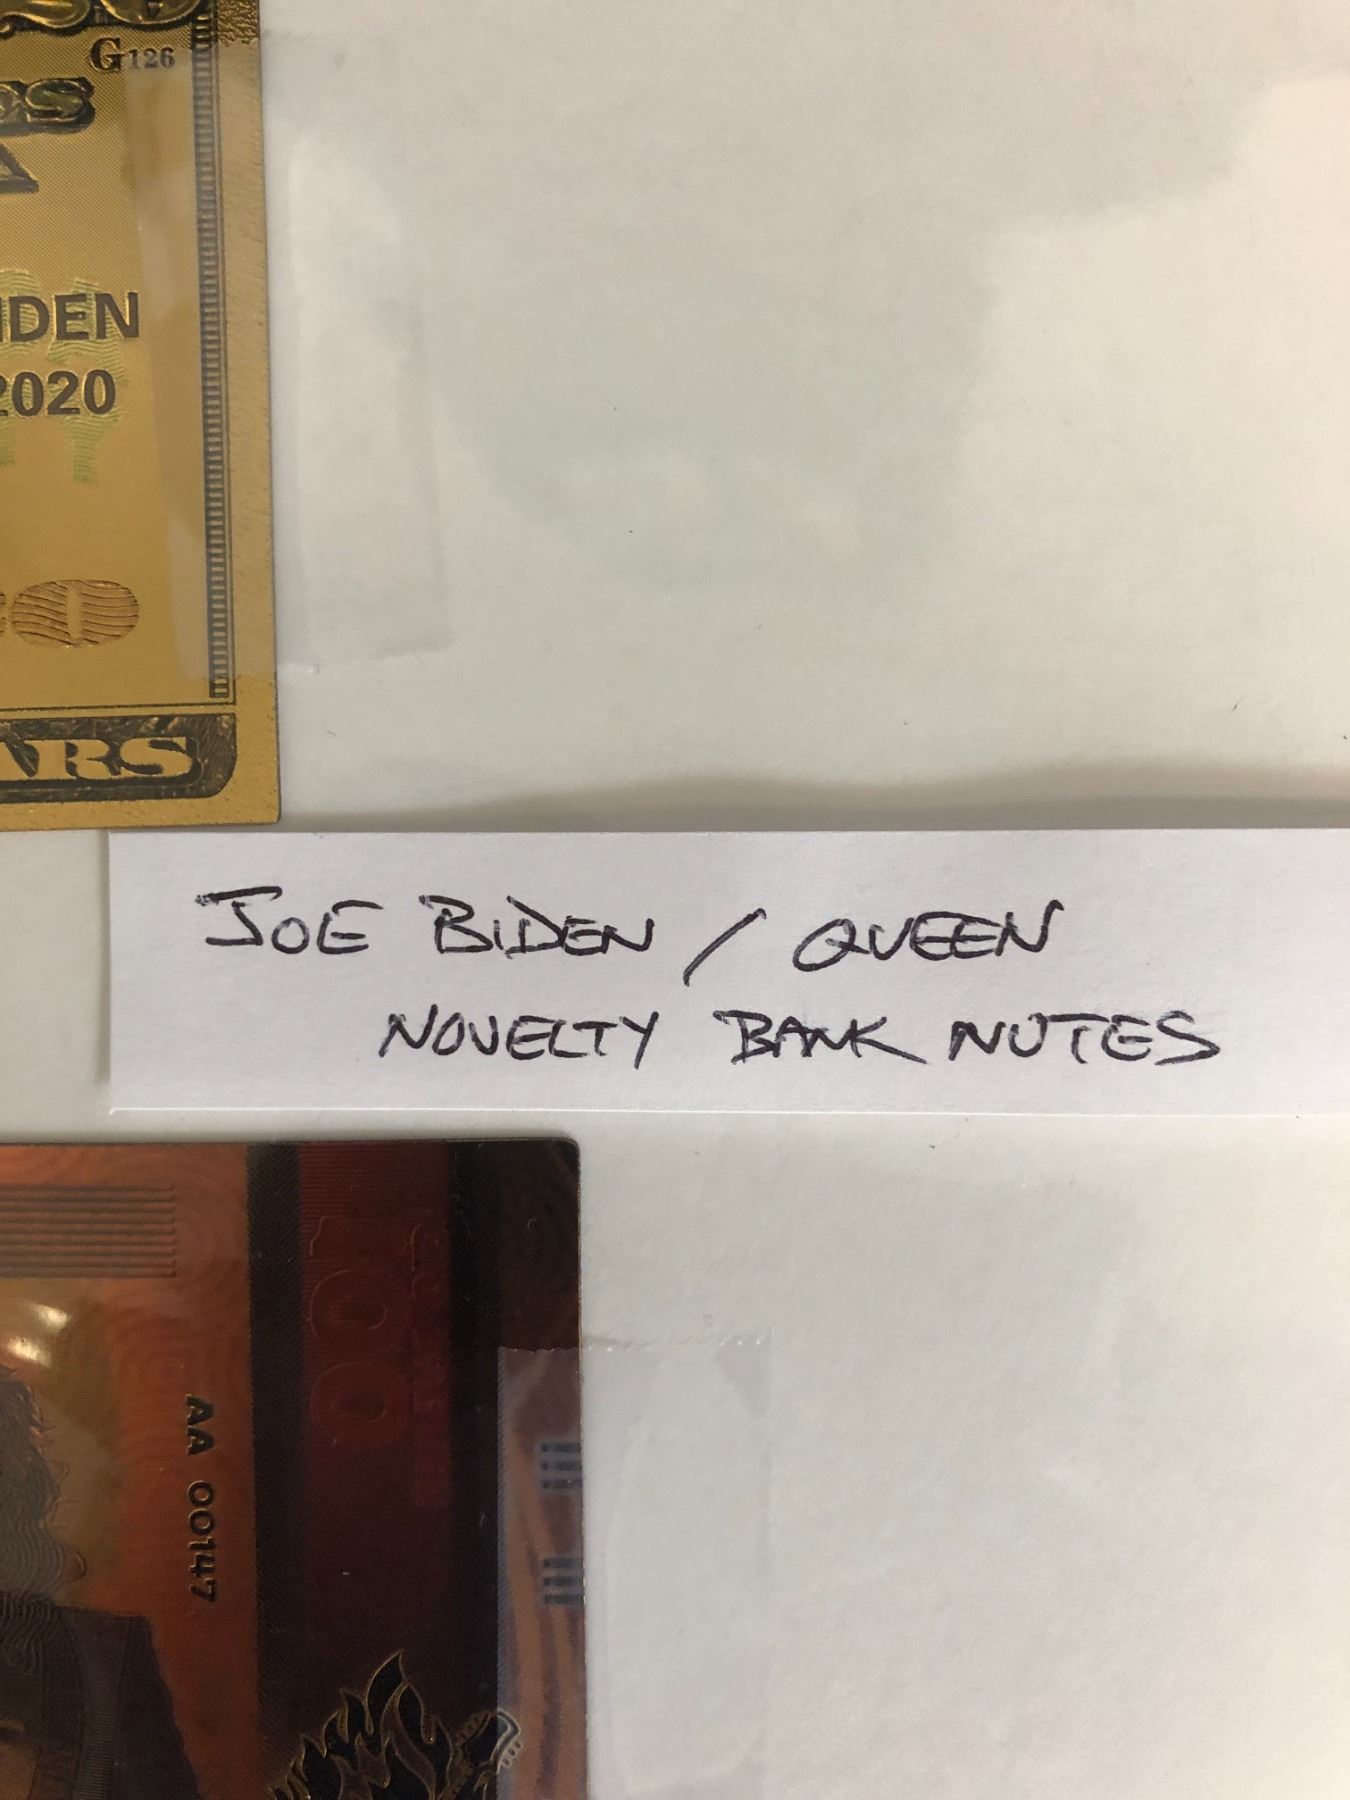 G126
ES
A
IDEN
2020
ARS
JOE BIDEN / QUEEN
NOVELTY BANK NOTES
100
AA 00147